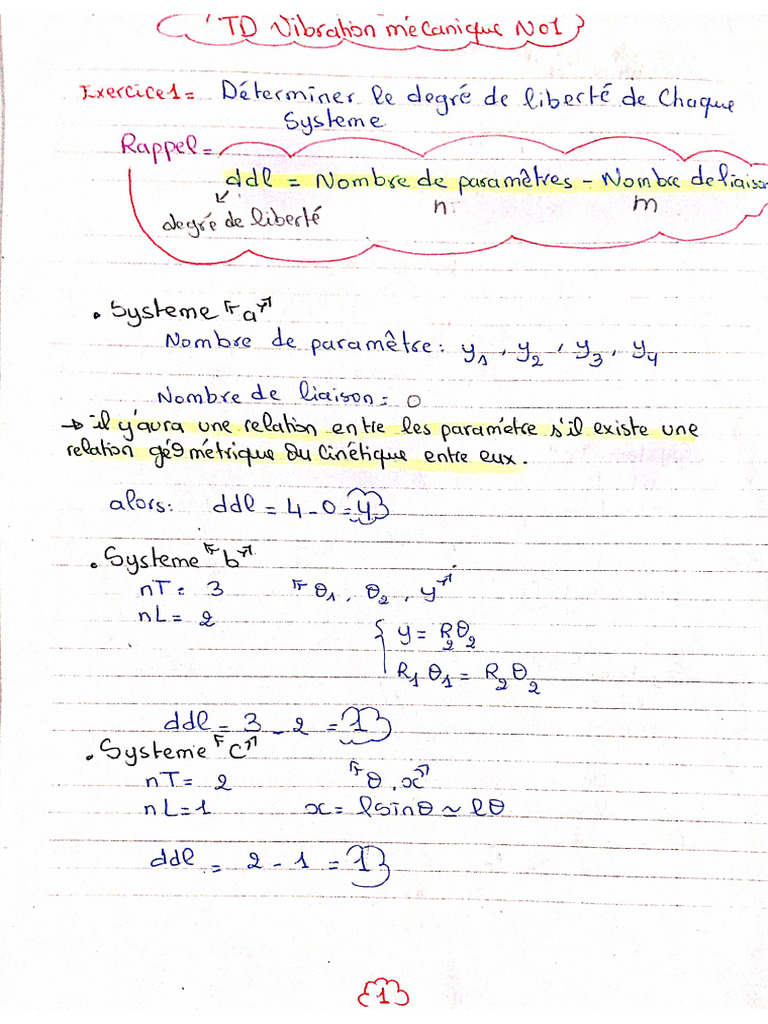 TD Vibration mécanique N01
Exercice1= Déterminer le degré de liberté de chaque
Systeme
Rappel=
ddl = Nombre de paramêtres - Nombre de liaison
n
m
degré de liberté
. Systeme "a"
Nombre de paramêtre: y1, y2, y3, y4
Nombre de liaison= 0
→ il y'aura une relation entre les paramètre s'il existe une
relation géométrique Ou Cinétique entre eux.
alors: ddl = 4-0=4
. Systeme "b"
nT= 3 "θ1, θ2, y"
nL= 2 { y= R2θ2
R1θ1= R2θ2
ddl = 3 - 2 = 1
. Systeme "c"
nT= 2 "θ, x"
nL=1 x= lsinθ ≃ lθ
ddl = 2 - 1 = 1
1